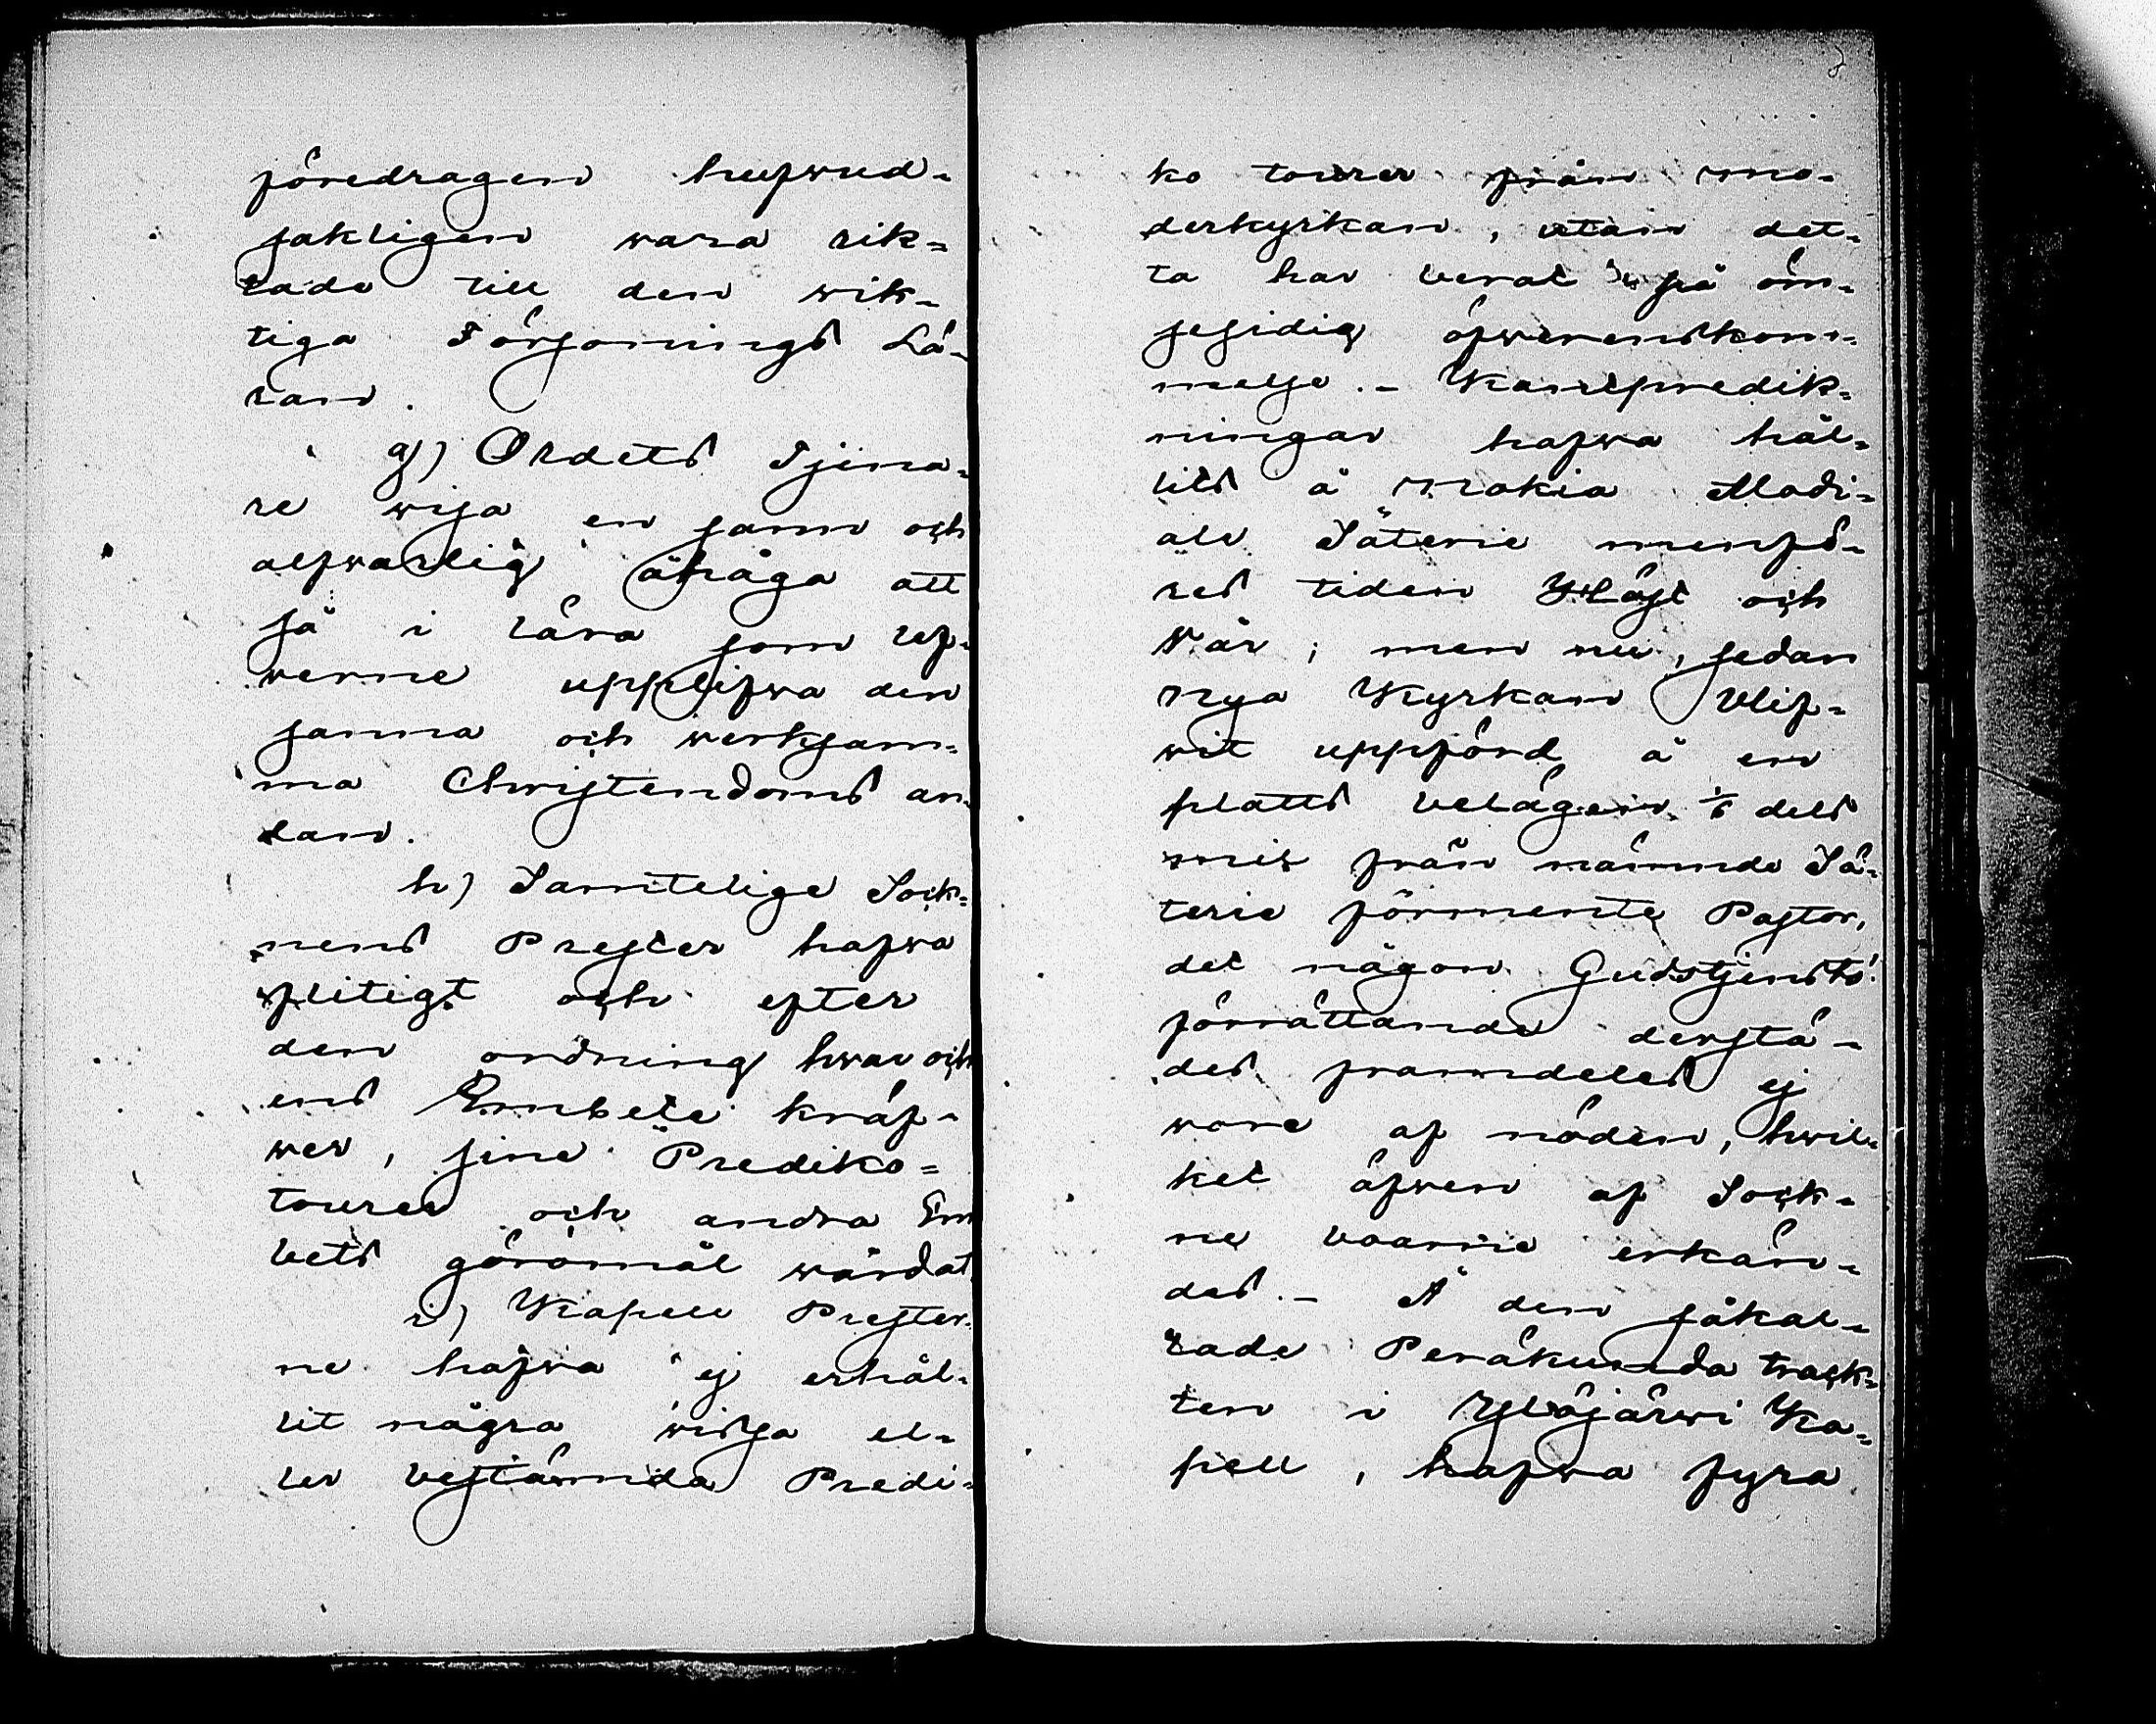 föredragen hufwud-
sakligen wara rik-
tade till den wik-
tiga Försonings Lä-
ran.
g) Ordets Tjena-
re wisa en sann och
alfwarlig åhåga att
så i lära som lef-
werne upplifwa den
sanna och werksam-
ma Christendoms an-
dan.
h) Samtelige Sock-
nens Prester hafwa
flitigt och efter
den ordning hwar och
ens Embete kräf-
wer, sine Prediko-
tourer och andra Em
bets göromål wårdat.
i) Kapell Prester-
ne hafwa ej erhål-
lit några wissa el-
ler bestämda Predi-
ko tourer från mo-
derkyrkan, utan det-
ta har berott på öm-
sesidig öfwerenskom-
melse. - Kanspredik-
ningar hafwa hål-
lits å Mokia Madi-
ale Säterie menfö-
res tiden Höst och
Wår; men nu, sedan
nya Kyrkan blif-
wit uppförd å en
platts belägen 1/6 dels
mil från nämnde Sä-
terie förmente Pastor,
det någon Gudstjensts
förrättande derstä-
des framdeles ej
wore af nöden, hwil-
ket äfwen af Sock-
ne boarne erkän-
des. - Å den såkal-
lade Peräkunda track-
ten i Ylöjärwi Ka-
pell, hafwa fyra